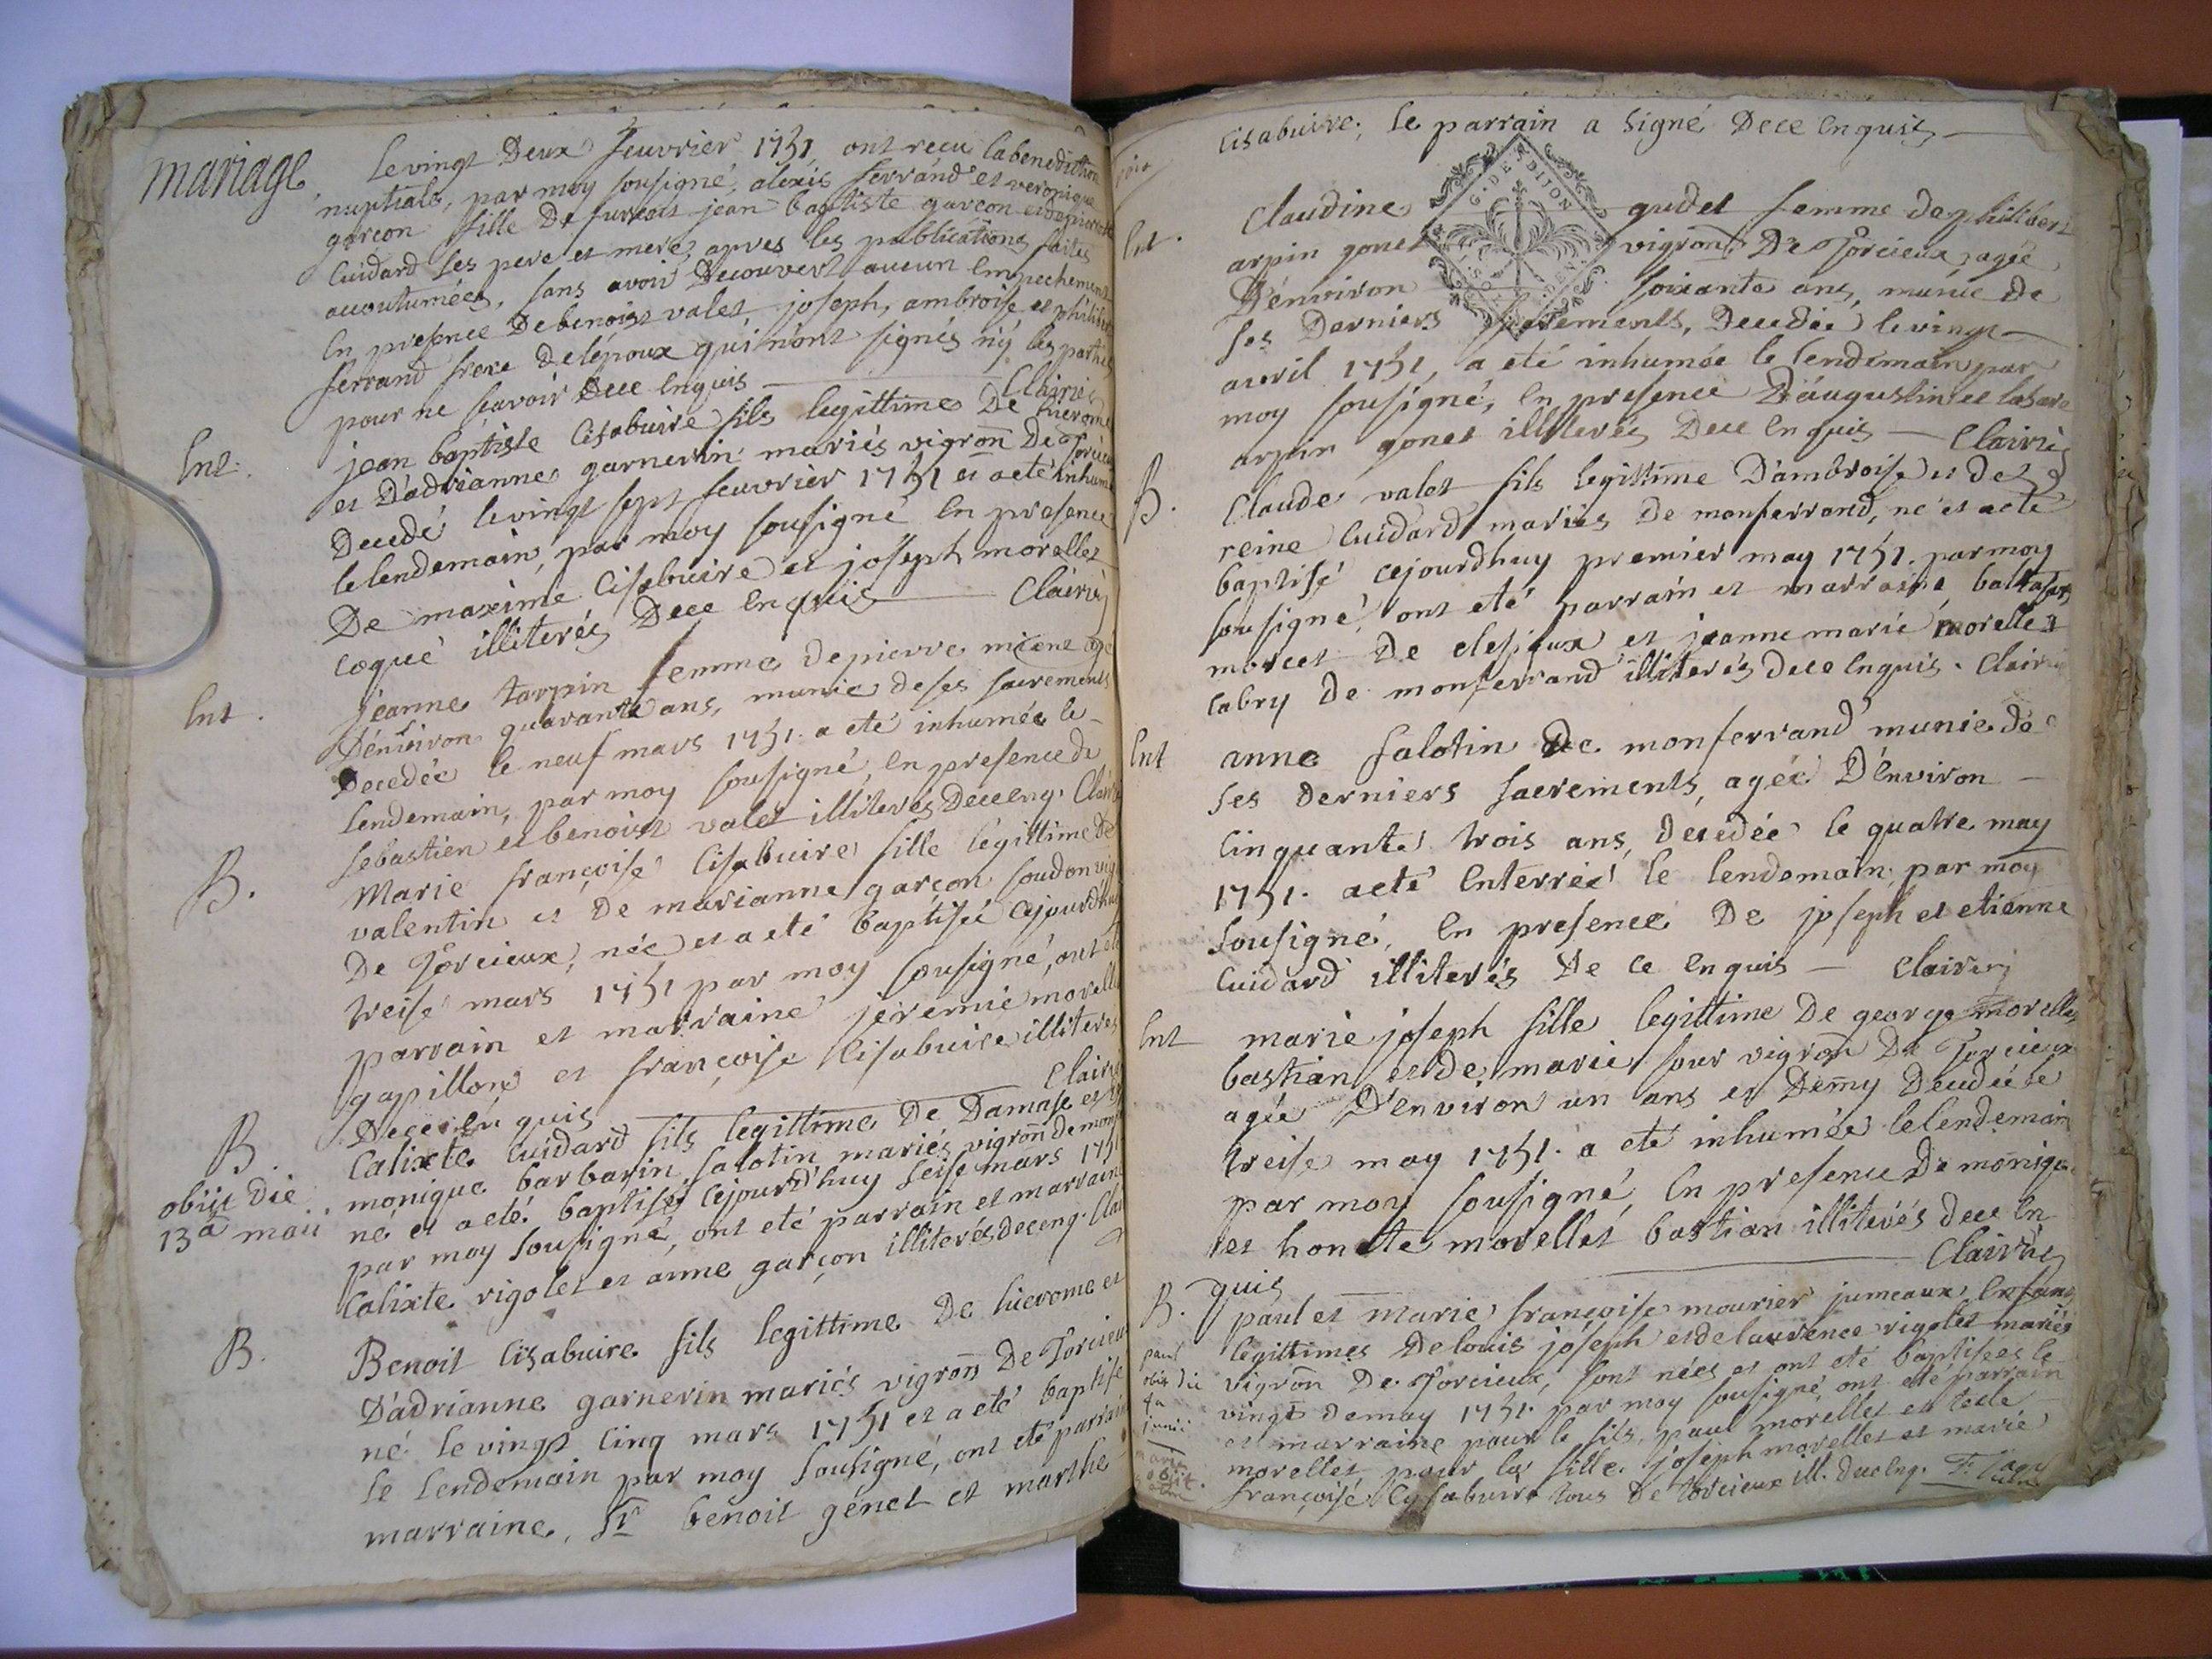 mariage
le vingt Deux feuvrier 1751 ont recu la benediction
nuptiale, par moy sousigné, alexis ferrand et veronique
garçon fille De furent jean baptiste garcon et depierrette
Cuidard ses pere et mere, apres les publications faites
acoutumées, sans avoir Decouvert aucun Empechement
En presence De benoist valet, joseph, ambroise, et philibert
ferrand frere delépoux qui n'ont signés n'y les parties
pour ne sçavoir Dece Enquis — Clairy
Ent. jean baptiste Cisabuire fils legittime De hierome
et D'adrianne garnerin mariés vigron De Torcieux
Decedé le vingt sept feuvrier 1751 et a eté inhumé
le lendemain, par moy sousigné En presence
De maxime Cisabuire et joseph morellet
coqué illiterés Dece Enquis — Clairy
Ent. jeanne tarpin femme depierre agé
D'environ quarante ans, munie de ses sacrements
Decedée le neuf mars 1751. a eté inhumée le
lendemain, par moy sousigné, en presence de
sebastien et benoist valet illiterés Dece Enq. Clairy
B. Marie françoise Cisabuire fille légittime De
valentin et De marianne garçon soudon vig
De Torcieux, née et a eté baptisée cejourd'huy
treise mars 1751 par moy sousigné, ont eté
parrain et marraine jeremie morellet
gapillon et françoise Cisabuire illiterés
Dece en quis — Clairy
B. Calixte Cuidard fils legittime De Damase et De
monique barbarin salotin mariés vigron de monf
obiit Die
13a maii
né et a eté baptisé cejourd'huy seise mars 1751
par moy sousigné, ont eté parrain et marraine
Calixte rigolet et anne garçon illiterés dece enq. Clai
B. Benoit Cisabuire fils legittime De hierome et
D'adrianne garnerin mariés vigron De Torcieux
né le vingt cinq mars 1751 et a eté baptisé
le lendemain par moy sousigné, ont eté parrain
marraine, Sr benoit génet et marthe
Cisabuire; le parrain a signé Dece Enquis —
G. DE DIJON
Ent. Claudine gudet femme de philibert
arpin gonet vigron De Torcieux agée
D'environ soixante ans, munie de
ses Derniers sacrements, Decedée le vingt
avril 1751, a eté inhumée le lendemain par
moy sousigné, En presence D'augustin et lasare
arpin gonet illiterés Dece Enquis — Clairy
B. Claude valet fils legittime D'ambroise et De
reine Cuidard mariés De monferrand, né et a eté
baptisé cejourdhuy premier may 1751. par moy
sousigné, ont eté parrain et marraine, baltasard
morcet De clesieux et jeanne marie morellet
cabry De monferrand illiterés dece Enquis. Clairy
Ent anne salotin De monferrand munie de
ses derniers sacrements, agée D'environ —
cinquante trois ans, decedée le quatre may
1751. a eté Enterrée le lendemain, par moy
sousigné, En presence De joseph et etienne
Cuidard illiterés De ce Enquis — Clairy
Ent marie joseph fille legittime De george morellet
bastian et de marie sour vigron De Torcieux
agée D'environ un ans et Demy Decedée le
treise may 1751. a eté inhumée le lendemain
par moy sousigné, En presence De monique
et honete morellet bastian illiterés dece En
quis — Clairy
B. paul et marie françoise mourier jumeaux Enfans
legittimes De louis joseph et de laurence rigolet mariés
paul
obiit die
4a
junii
vigron De Torcieux, sont nées et ont eté baptisées le
vingt de may 1751. par moy sousigné, ont eté parrain
et marraine pour le fils, paul morellet et
maria
obiit
morellet, pour la fille joseph morellet et marie
françoise Cysabuire tous De torcieux ill. dece Enq.